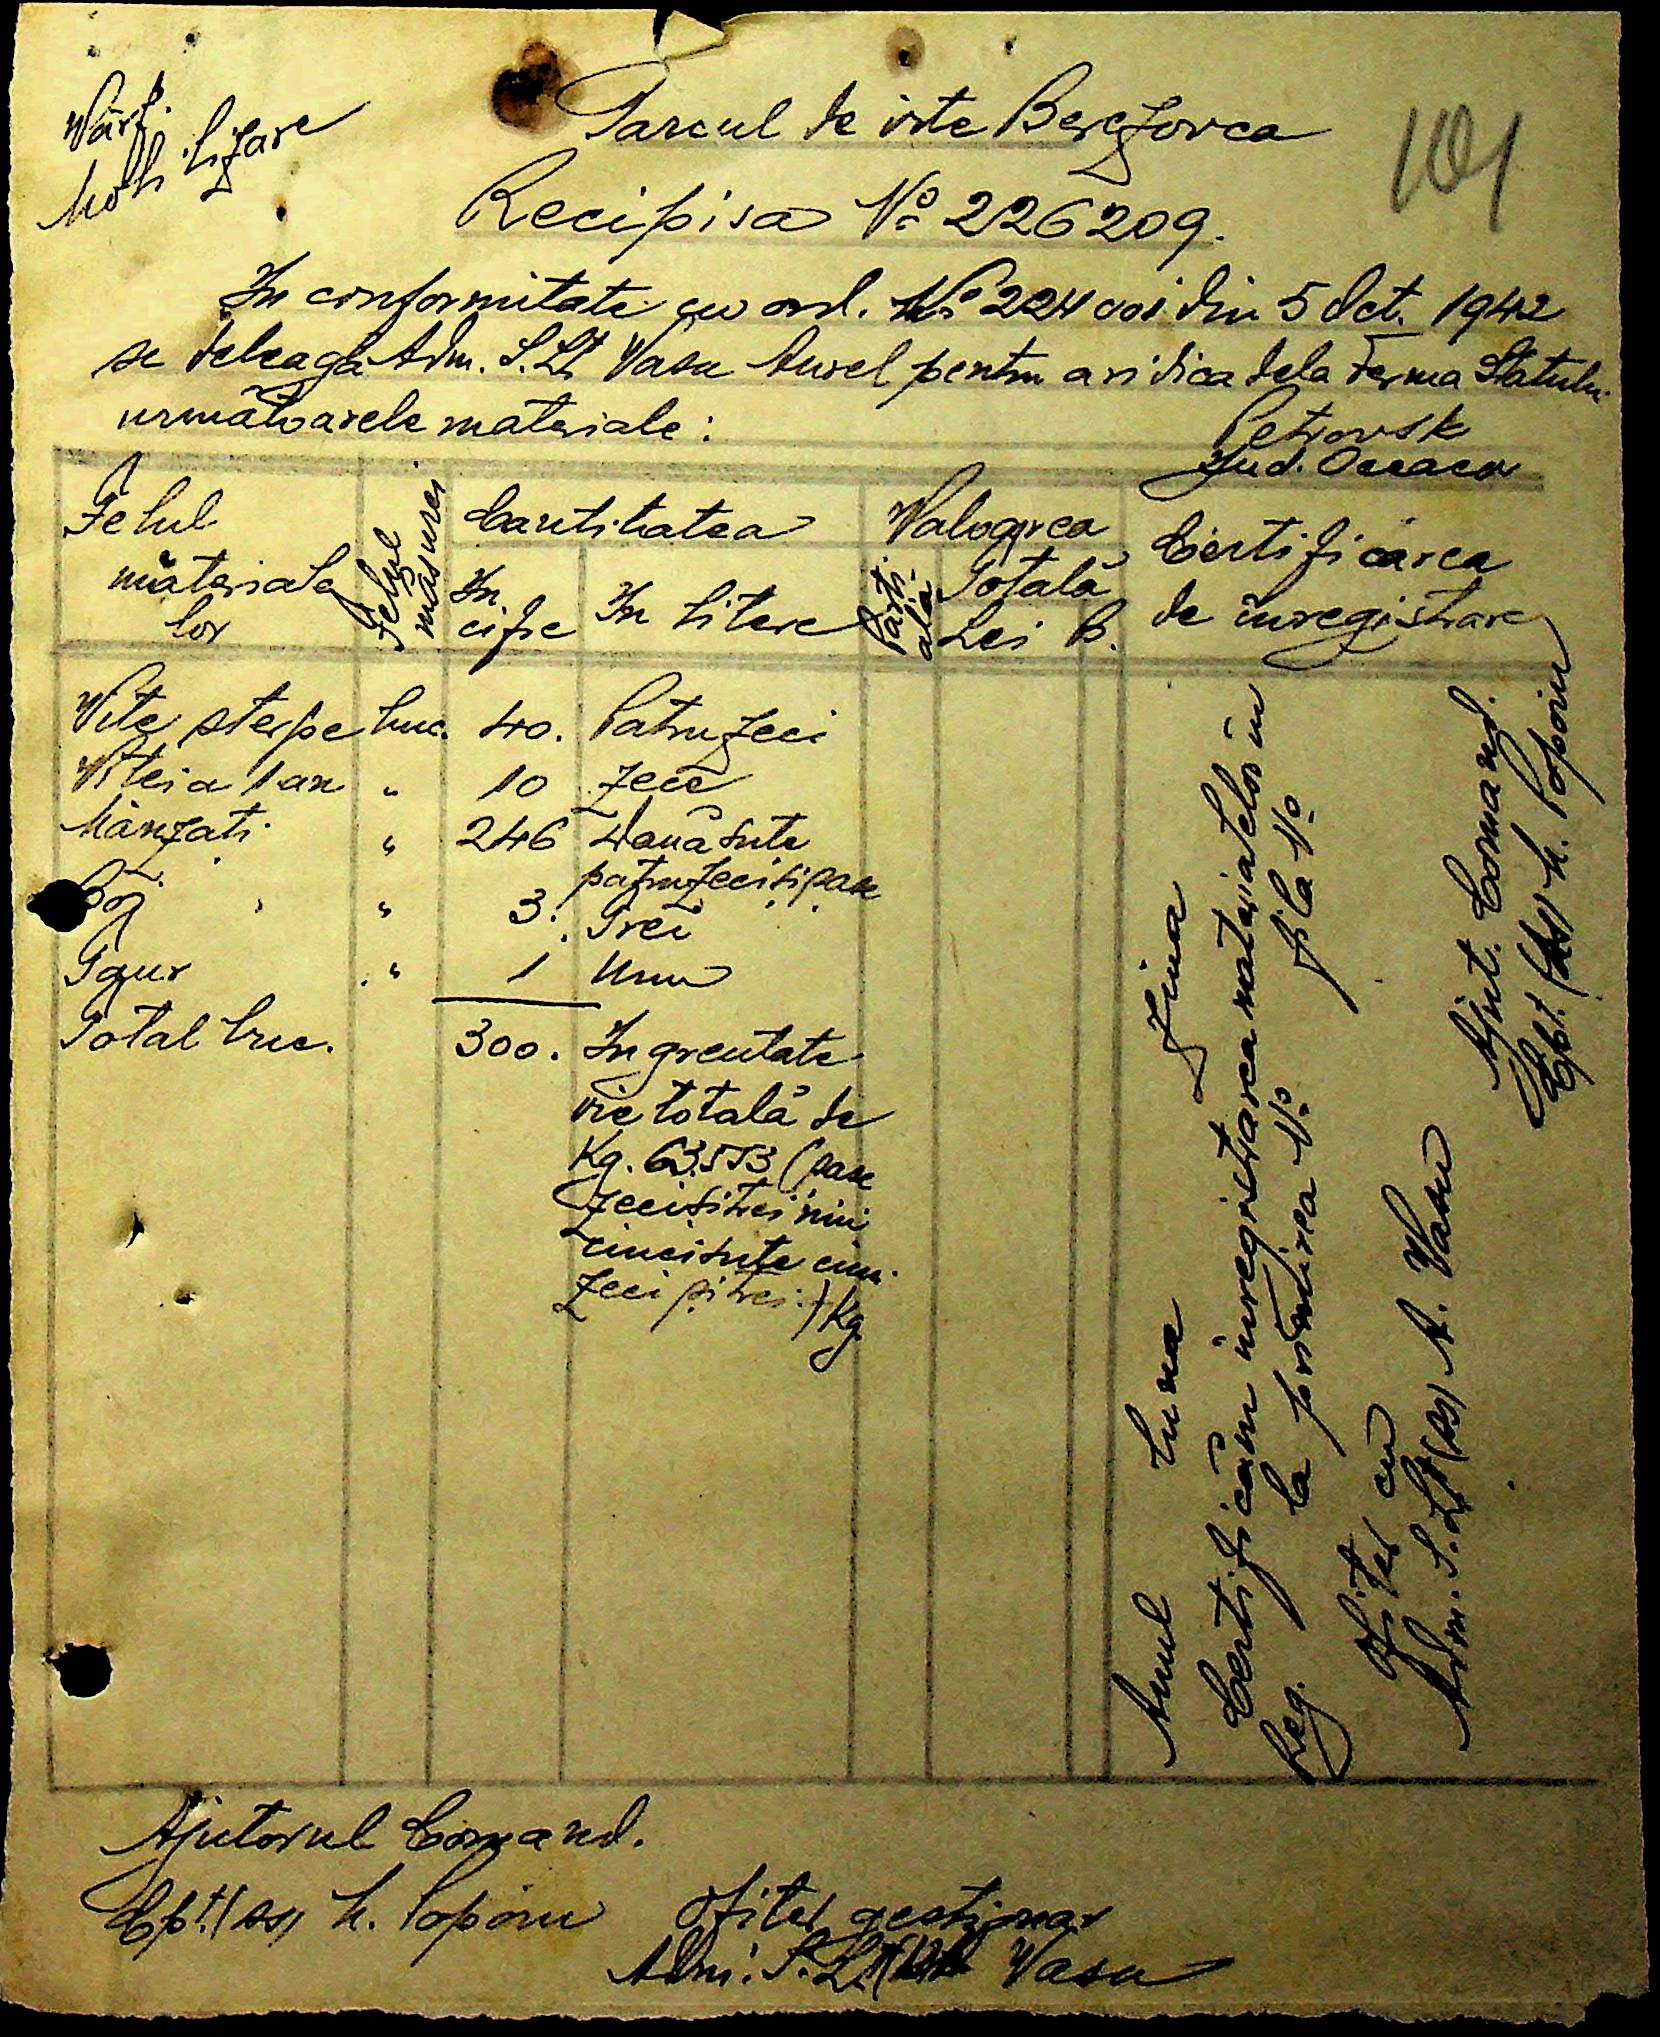 Vărf.
Mobilizare
101
Parcul de vite Berezovca
Recipisa No 226209.
In conformitate cu ord. No 224001 din 5 Oct. 1942
se deleagă Adm. S.Lt Vasu Aurel pentru a ridica dela Ferma Statului
Petrovsk
Jud. Oceacov
următoarele materiale:
Felul materialelor
Felul măsurei
Cantitatea
In cifre
In litere
Valoarea
Parțială
Totală
Lei B.
Certificarea
de înregistrare
Vite sterpe buc. 40. Patruzeci
Viței a 1 an " 10 Zece
Mânzați " 246 Două sute
patruzeci și șase
Boi " 3. Trei
Taur " 1 Unu
Total buc. 300. In greutate
vie totală de
Kg. 63.553 (șase
zeci și trei mii
cinci sute cinci
zeci și trei) Kg.
Anul Luna Ziua
Certificăm înregistrarea materialelor în
Reg. la primirea No fila No
Ofițer cu
Adm. S.Lt (ss) A. Vasu
Ajut. Comand.
Cpt. (ss) M. Popoiu
Ajutorul Comand.
Cpt. (ss) M. Popoiu
Ofițer gestionar
Adm. S.Lt Vasu